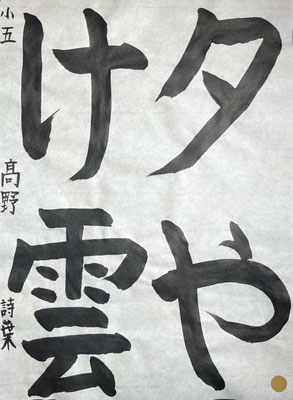 夕や
け雲
小五 髙野 詩葉